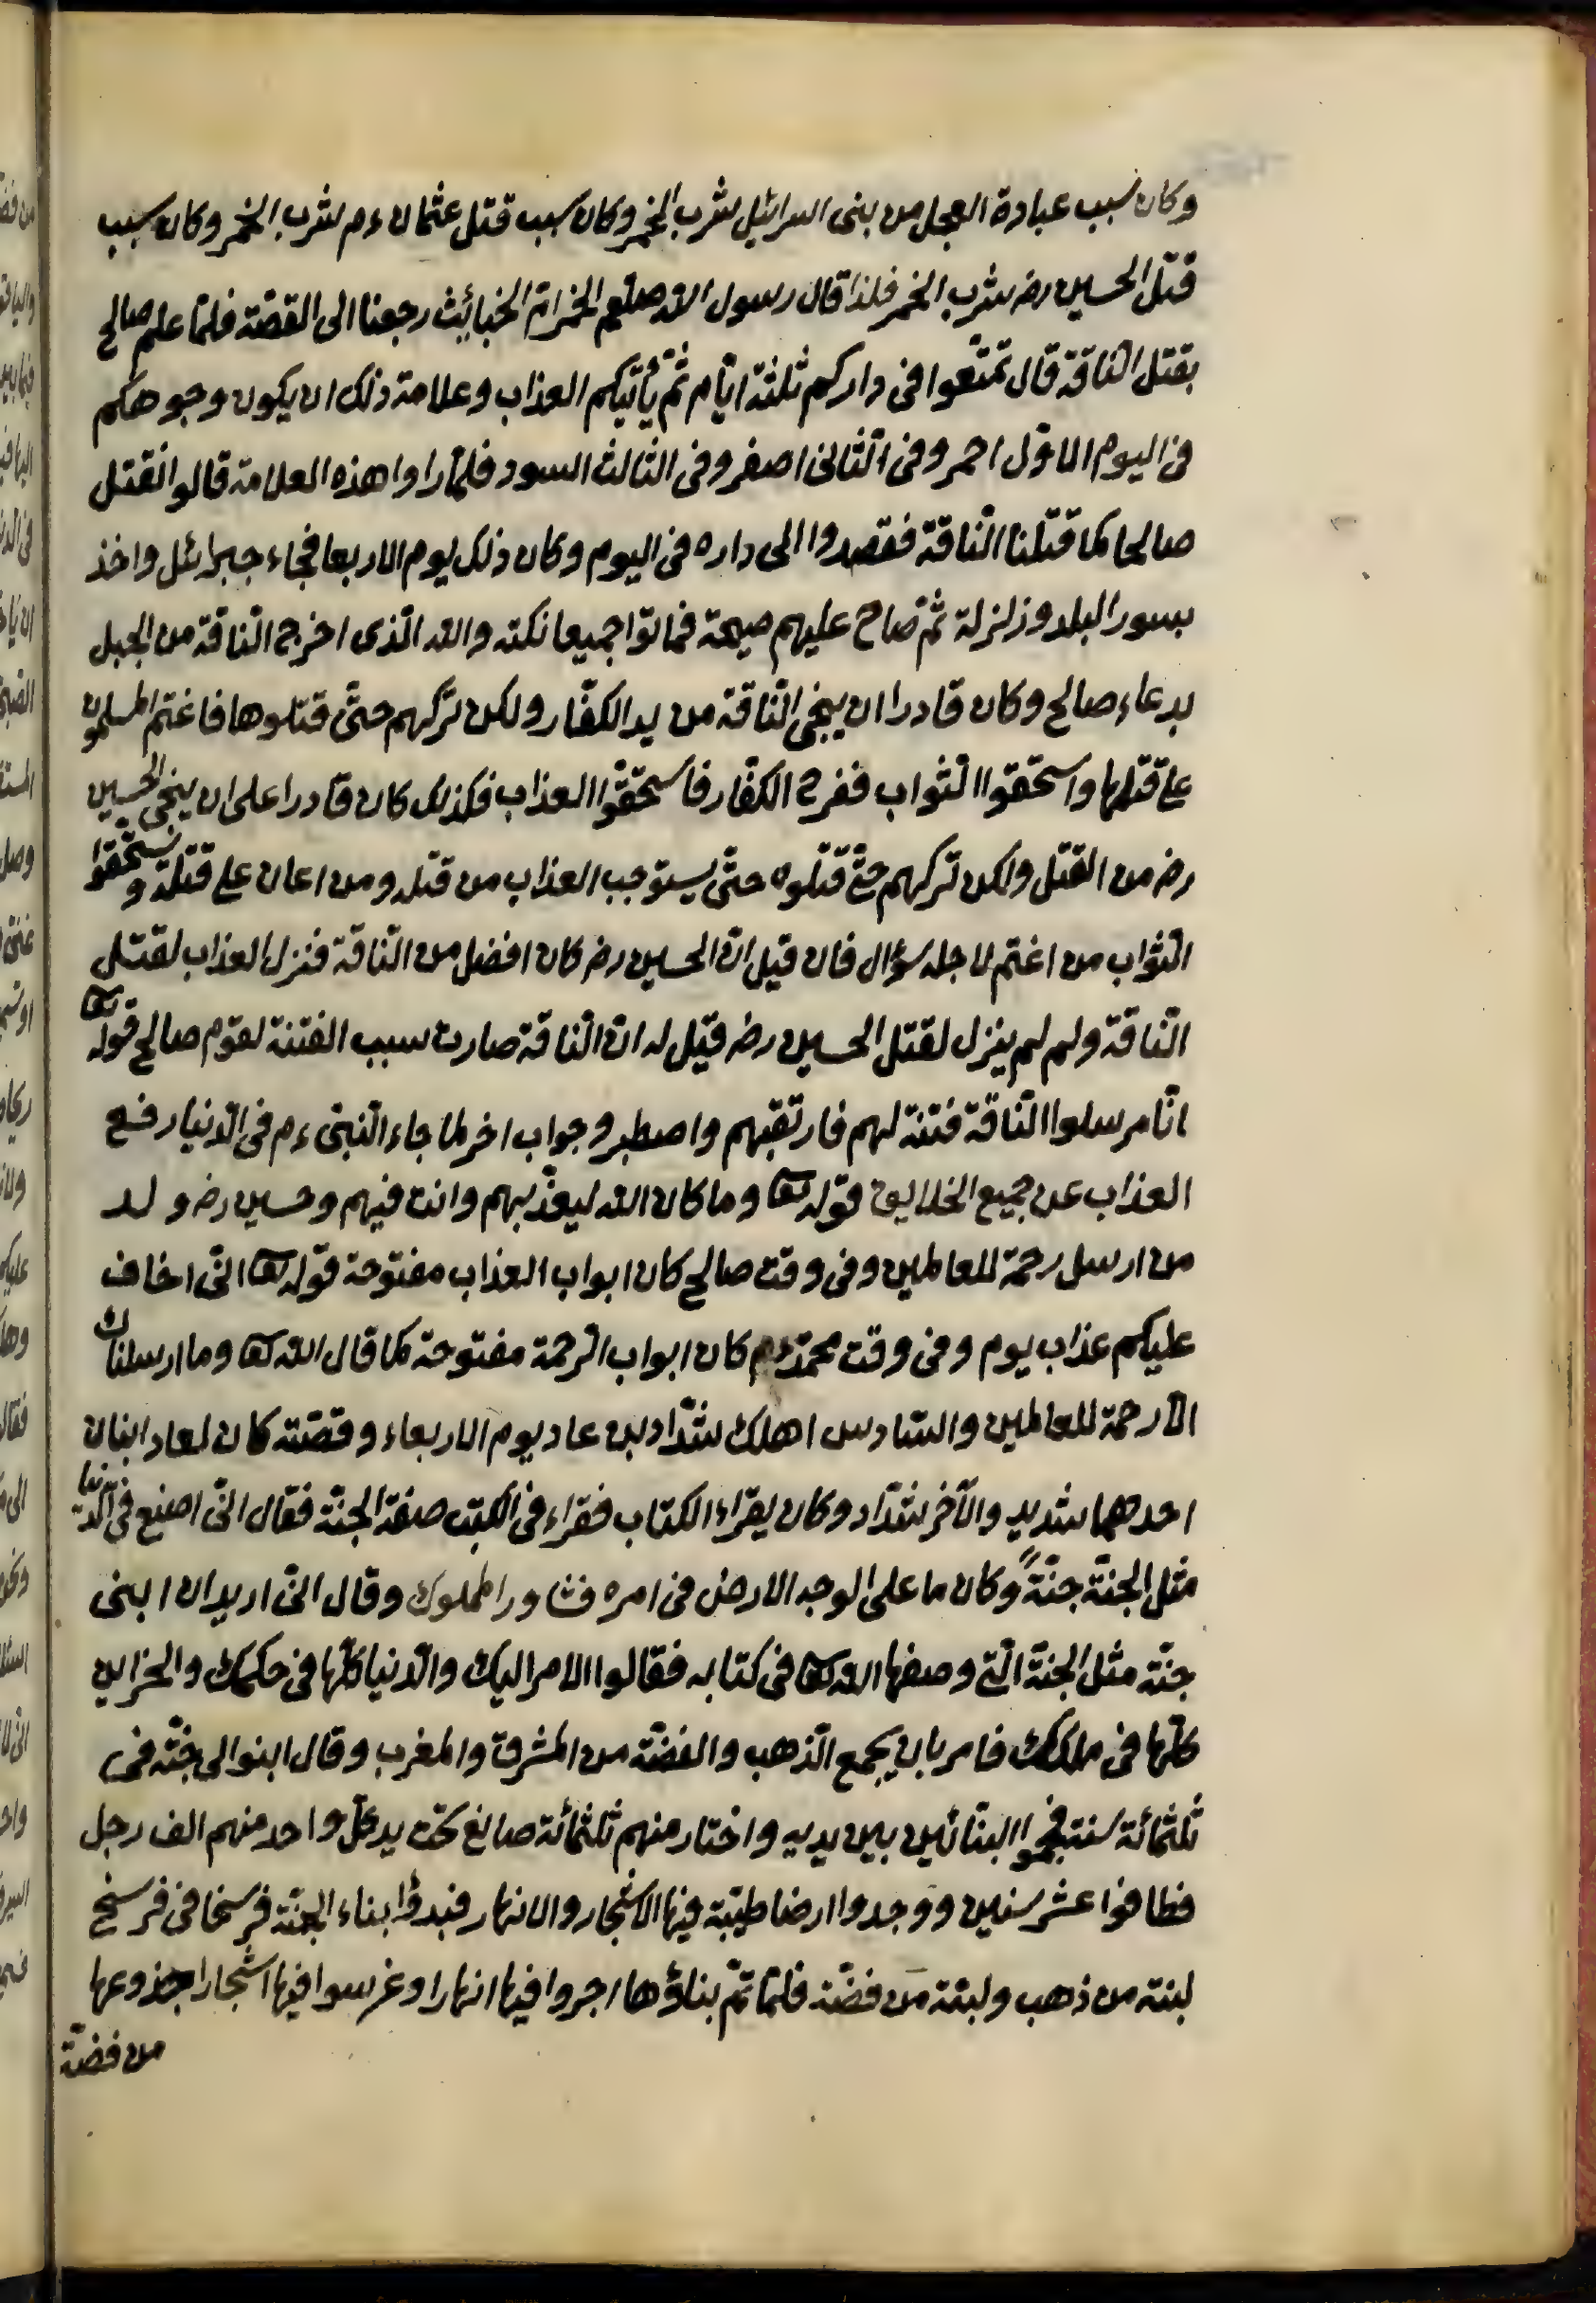 وكان سبب عبادة العجل من بنى اسرائيل شرب الخمر وكان سبب قتل عثمان ءم شرب الخمر وكان سبب
قتل الحسين رض شرب الخمر فلذا قال رسول الله صلعم الخمر امّ الخبائيث رجعنا الى القصّة فلمّا علم صالح
بقتل النّاقة قال تمتّعوا فى داركم ثلثة ايّام ثمّ يأتيكم العذاب وعلامة ذلك ان يكون وجوهكم
فى اليوم الاوّل احمر وفى الثّانى اصفر وفى الثالث اسود فلمّا راوا هذه العلامة قالوا نقتل
صالحا كما قتلنا النّاقة فقصدوا الى داره فى اليوم وكان ذلك يوم الاربعا فجاء جبرائل واخذ
بسور البلد وزلزلة ثمّ صاح عليهم صيحة فماتوا جميعا نكته والله الّذى اخرج النّاقة من الجبل
بدعاء صالح وكان قادرا ان ينجى النّاقة من يد الكفّار ولكن تركهم حتّى قتلوها فاغتم المسلمون
على قتلها واستحقوا الثواب ففرح الكفّار فاستحقّوا العذاب فكذلك كان قادرا على ان ينجى الحسين
رض من القتل ولكن تركهم حتّى قتلوه حتّى يستوجب العذاب من قتله ومن اعان على قتله ويستحّقوا
الثواب من اغتم لاجله سؤال فان قيل انّ الحسين رض كان افضل من النّاقة فنزل العذاب لقتل
النّاقة ولم لم ينزل لقتل الحسين رض قيل له انّ النّاقة صارت سبب الفتنة لقوم صالح قوله تعا
انّا مرسلوا النّاقة فتنة لهم فارتقبهم واصطبر وجواب اخر لما جاء النّبىّ ءم فى الدّنيا رفع
العذاب عن جميع الخلايق قوله تعا وما كان الله ليعذّبهم وانت فيهم وحسين رض ولد
من ارسل رحمة للعالمين وفى وقت صالح كان ابواب العذاب مفتوحة قوله تعا انّى اخاف
عليكم عذاب يوم وفى وقت محمّد ءم كان ابواب الرّحمة مفتوحة كما قال الله تعا وما ارسلناك
الّا رحمة للعالمين والسّادس اهلك شدّاد بن عاد يوم الاربعاء وقصّته كان لعاد ابنان
احدهما شديد والآخر شدّاد وكان يقراء الكتاب فقراء فى الكتب صفة الجنّة فقال انّى اصنع فى الدّنيا
مثل الجنّة جنّةً وكان ما على الوجه الارض فى امره فشاور الملوك وقال انّى اريد ان ابنى
جنّة مثل الجنّة الّتى وصفها الله تعا فى كتابه فقالوا الامر اليك والدّنيا كلّها فى حكمك والخزاين
كلّها فى ملكك فامر بان يجمع الذّهب والفضّة من المشرق والمغرب وقال ابنوا لى جنّة فى
ثلثمائة سنة فجمعوا البنّائين بين يديه واختار منهم ثلثمائة صانع تحت يد كلّ واحد منهم الف رجل
فطافوا عشر سنين ووجدوا ارضا طيّبة فيها الاشجار والانهار فبدؤا بناء الجنّة فرسخا فى فرسخ
لبنة من ذهب ولبنة من فضّة فلمّا تمّ بناؤها اجروا فيها انهارا وغرسوا فيها اشجارا جذوعها
من فضّة